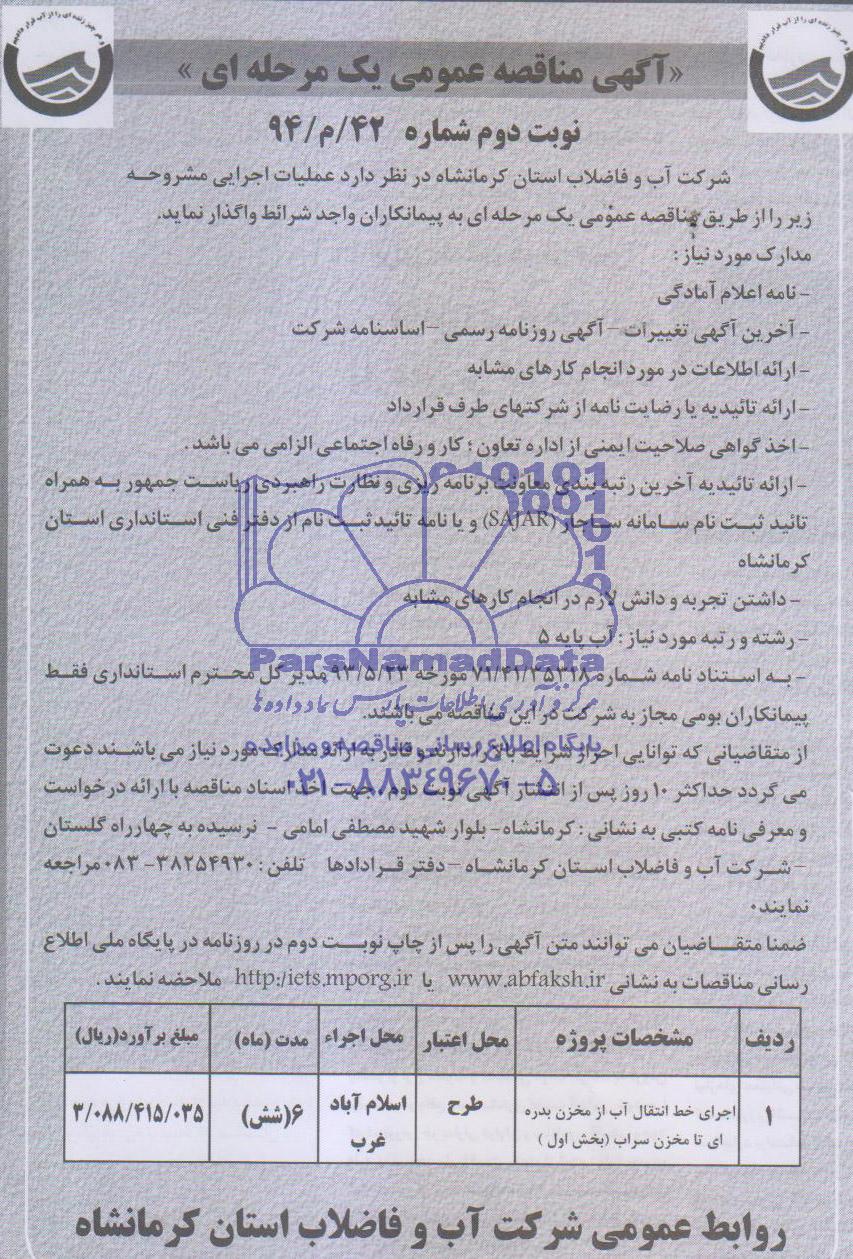 «آگهی مناقصه عمومی یک مرحله ای»
نوبت دوم شماره ۴۲/م/۹۴
شرکت آب و فاضلاب استان کرمانشاه در نظر دارد عملیات اجرایی مشروحه
زیر را از طریق مناقصه عمومی یک مرحله ای به پیمانکاران واجد شرائط واگذار نماید.
مدارک مورد نیاز :
- نامه اعلام آمادگی
- آخرین آگهی تغییرات – آگهی روزنامه رسمی – اساسنامه شرکت
- ارائه اطلاعات در مورد انجام کارهای مشابه
- ارائه تائیدیه یا رضایت نامه از شرکتهای طرف قرارداد
- اخذ گواهی صلاحیت ایمنی از اداره تعاون ؛ کار و رفاه اجتماعی الزامی می باشد .
- ارائه تائیدیه آخرین رتبه بندی معاونت برنامه ریزی و نظارت راهبردی ریاست جمهور به همراه
تائید ثبت نام سامانه ساجار (SAJAR) و یا نامه تائید ثبت نام از دفتر فنی استانداری استان
کرمانشاه
- داشتن تجربه و دانش لازم در انجام کارهای مشابه
- رشته و رتبه مورد نیاز : آب پایه ۵
- به استناد نامه شماره مورخه ۹۳/۵/۲۳ مدیر کل محترم استانداری فقط
پیمانکاران بومی مجاز به شرکت در این مناقصه می باشند.
از متقاضیانی که توانایی احراز شرایط بالا را دارند و قادر به ارائه مدارک مورد نیاز می باشند دعوت
می گردد حداکثر ۱۰ روز پس از انتشار آگهی نوبت دوم ، جهت اخذ اسناد مناقصه با ارائه درخواست
و معرفی نامه کتبی به نشانی : کرمانشاه- بلوار شهید مصطفی امامی - نرسیده به چهارراه گلستان
– شرکت آب و فاضلاب استان کرمانشاه – دفتر قرادادها تلفن : ۳۸۲۵۴۹۳۰- ۰۸۳ مراجعه
نمایند.
ضمنا متقاضیان می توانند متن آگهی را پس از چاپ نوبت دوم در روزنامه در پایگاه ملی اطلاع
رسانی مناقصات به نشانی www.abfaksh.ir یا http:/iets.mporg.ir ملاحضه نمایند .
ردیف مشخصات پروژه محل اعتبار محل اجراء مدت (ماه) مبلغ برآورد(ریال)
۱ اجرای خط انتقال آب از مخزن بدره ای تا مخزن سراب (بخش اول ) طرح اسلام آباد غرب ۶(شش) ۳/۰۸۸/۴۱۵/۰۳۵
روابط عمومی شرکت آب و فاضلاب استان کرمانشاه
ParsNamadData
مرکز فرآوری اطلاعات پارس نماد داده ها
پایگاه اطلاع رسانی مناقصه و مزایده
۰۲۱-۸۸۳۴۹۶۷۰-۵